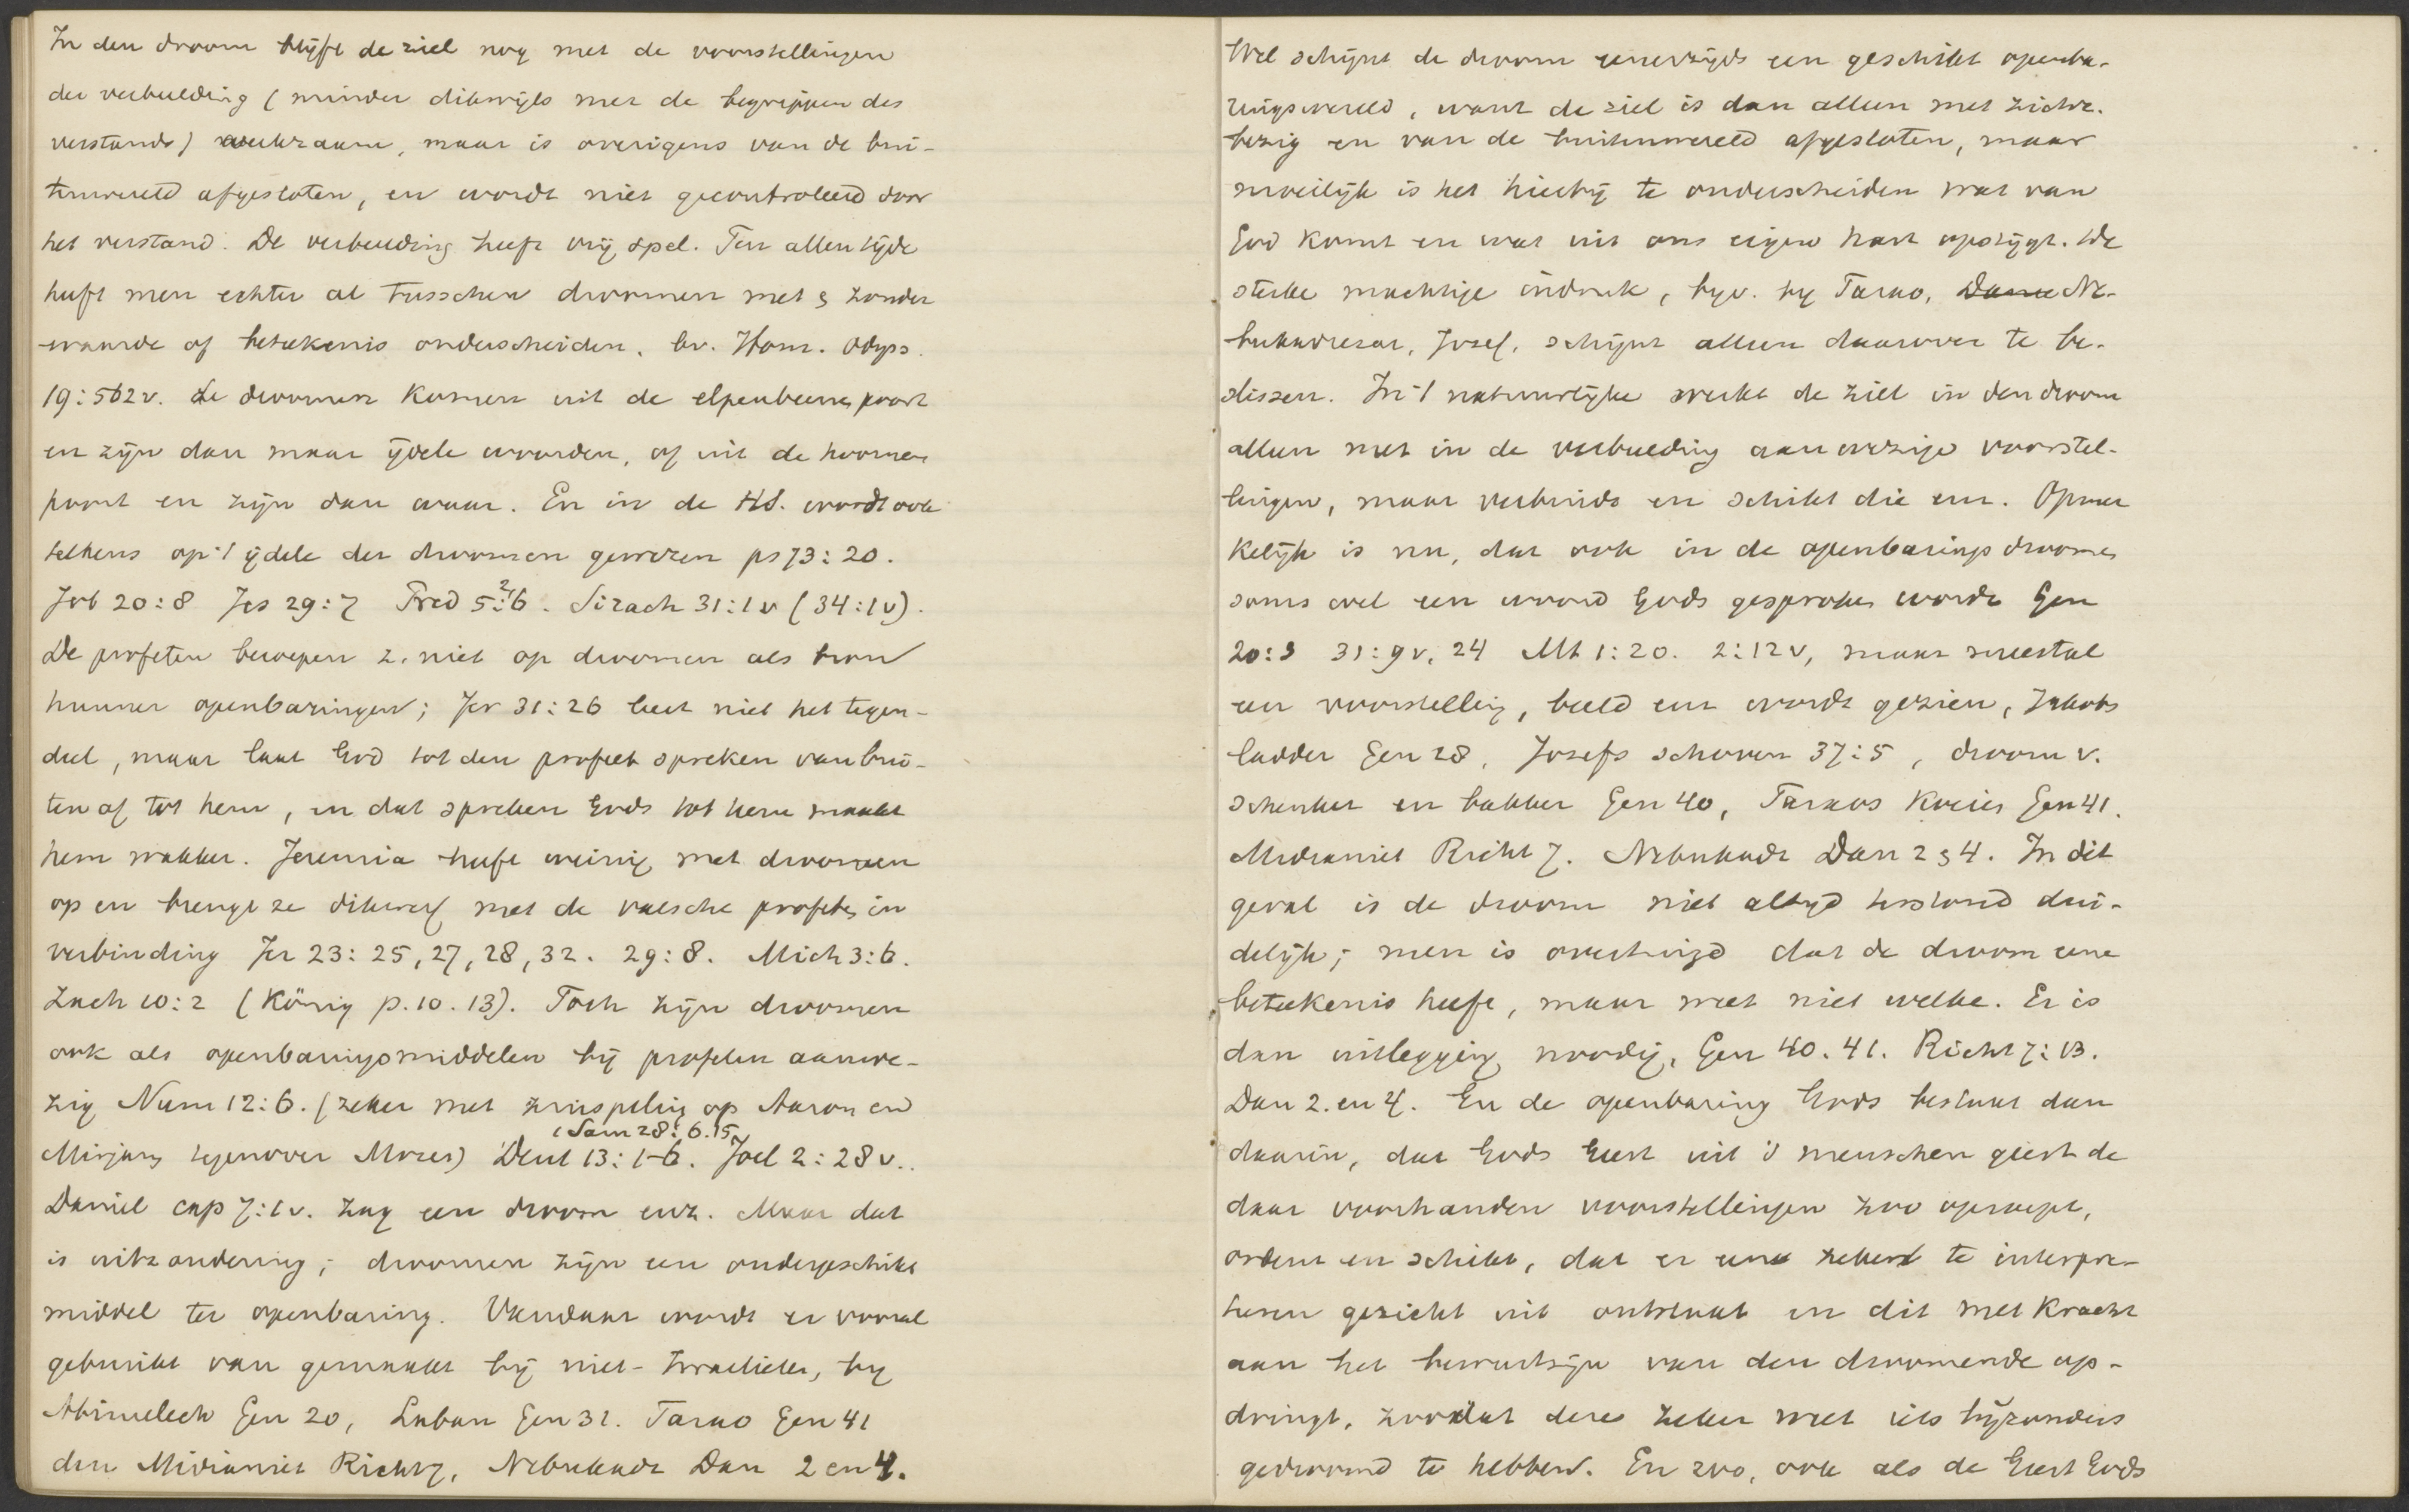 In den droom blijft de ziel nog met de voorstellingen
der verbeelding (minder dikwijls met de begrippen des
verstands) werkzaam, maar is overigens van de bui-
tenwereld afgesloten, en wordt niet gecontroleerd door
het verstand. De verbeelding heeft vrij spel. Ten allen tijde
heeft men echter al tusschen droomen met & zonder
waarde of beteekenis onderscheiden. bv. Hom. Odyss.
19:562v. de droomen komen uit de elpenbeenen poort
en zijn dan maar ijdele woorden, of uit de hoornen
poort en zijn dan waar. En in de HS. wordt ook
telkens op 't ijdele der droomen gewezen ps 73:20.
Job 20:8 Jes 29:7 Pred 5:2,6. Sirach 31:1v (34:1v).
De profeten beroepen z. niet op droomen als bron
hunner openbaringen; Jer 31:26 leert niet het tegen-
deel, maar laat God tot den profeet spreken van bui-
ten af tot hem, en dat spreken Gods tot hem maakt
hem wakker. Jeremia heeft weinig met droomen
op en brengt ze dikwerf met de valsche profeten in
verbinding Jer 23:25,27,28,32. 29:8. Mich 3:6.
Zach 10:2 (König p.10.13). Toch zijn droomen
ook als openbaringsmiddelen bij profeten aanwe-
zig Num 12:6. (zeker met zinspeling op Aaron en
Mirjam tegenover Mozes) Deut 13:1-6. 1 Sam 28:6.15 Joel 2:28v..
Daniel cap 7:1v. zag een droom enz. Maar dat
is uitzondering; droomen zijn een ondergeschikt
middel ter openbaring. Vandaar wordt er vooral
gebruikt van gemaakt bij niet-Israelieten, bij
Abimelech Gen 20, Laban Gen 31. Farao Gen 41
den Midianiet Richt 7, Nebukadr Dan 2 en 4.
Wel schijnt de droom eenerzijds een geschikt openba-
ringswereld, want de ziel is dan alleen met zichz.
bezig en van de buitenwereld afgesloten, maar
moeilijk is het hierbij te onderscheiden wat van
God komt en wat uit ons eigen hart opstijgt. De
sterke machtige indruk, bijv. bij Farao, Ne-
bukadrezar, Josef, schijnt alleen daarover te be-
slissen. In 't natuurlijke werkt de ziel in den droom
alleen met in de verbeelding aanwezige voorstel-
lingen, maar verbindt en schikt die enz. Opmer
kelijk is nu, dat ook in de openbaringsdroomen
soms wel een woord Gods gesproken wordt Gen
20:3 31:9v, 24 Mt 1:20. 2:12v, maar meestal
een voorstelling, beeld enz wordt gezien, Jakobs
ladder Gen 28, Josefs schoven 37:5, droom v.
schenker en bakker Gen 40, Faraos koeien Gen 41.
Midianiet Richt 7. Nebukadr Dan 2 & 4. In dit
geval is de droom niet altijd terstond dui-
delijk; men is overtuigd dat de droom eene
beteekenis heeft, maar weet niet welke. Er is
dan uitlegging noodig, Gen 40. 41. Richt 7:13.
Dan 2. en 4. En de openbaring Gods bestaat dan
daarin, dat Gods Geest uit 's menschen geest de
daar voorhanden voorstellingen zoo oproept,
ordent en schikt, dat er een zeker te interpre-
teren gezicht uit ontstaat en dit met kracht
aan het bewustzijn van den droomende op-
dringt, zoodat deze zeker weet iets bijzonders
gedroomd te hebben. En zoo, ook als de Geest Gods